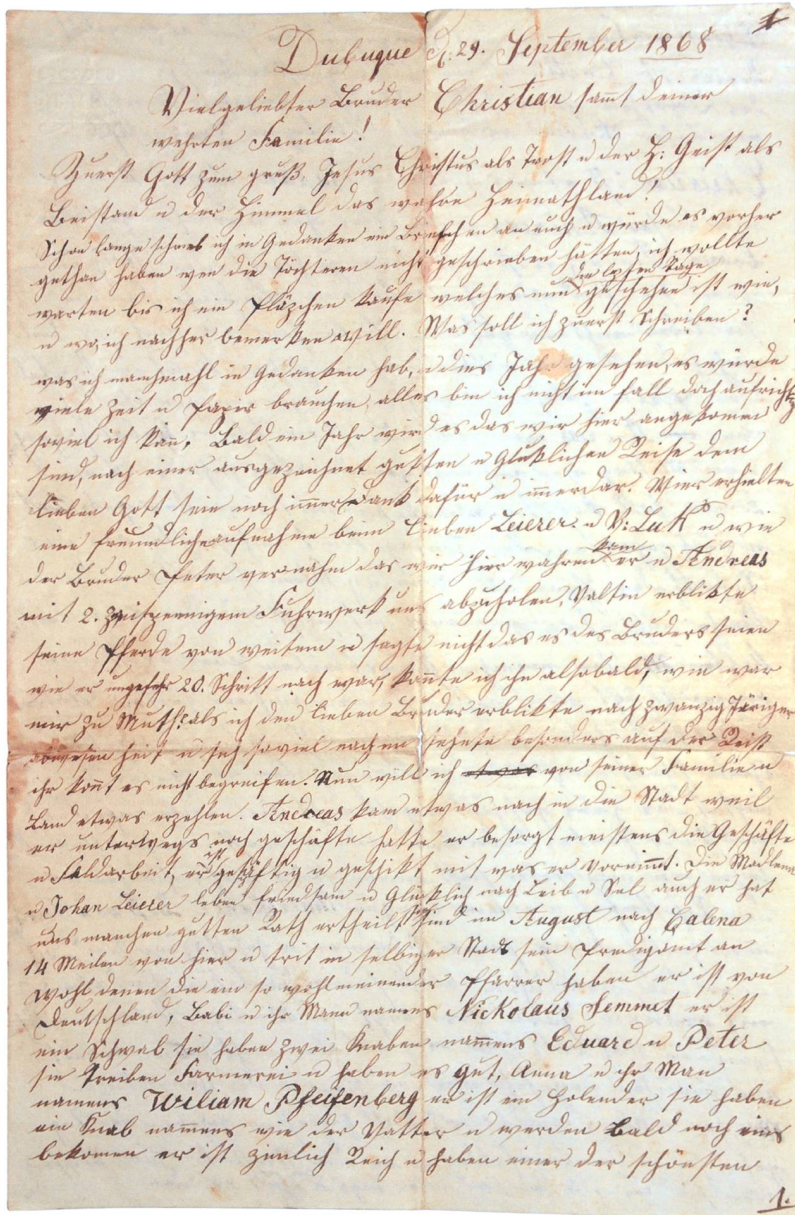 1
Dubuque d. 29. September 1868
Vielgeliebter Bruder Christian sammt deiner
wehrten Familie!
Zuerst Gott zum gruß, Jesus Christus als Trost u der H: Geist als
Beistand u der Himmel das wahre Heimathland!
Schon lange schrieb ich in Gedanken ein Briefchen an euch u würde es vorher
gethan haben wen die Töchteren nicht geschrieben hätten, ich wollte
warten bis ich ein Pläzchen kaufe welches nun die lezten Tage geschehen ist wie,
u wo, ich nachher bemerken will. Was soll ich zuerst Schreiben?
was ich manchmahl in Gedanken hab, u dies Jahr gesehen, es würde
viele Zeit u Papir brauchen, alles bin ich nicht im fall doch aufrichtig
soviel ich kan, Bald ein Jahr wird es das wir hier angekomen
sind, nach einer ausgezeichnet gutten u Glüklichen Reise dem
lieben Gott sein noch immer Dank dafür u immerdar. Wier erhielten
eine freundliche aufnahme beim lieben Leierer u V: Luk u wie
der Bruder Peter vernahm das wir hier wahren kam er u Andreas
mit 2. zweispennigem Fuhrwerk uns abzuholen, Valtin erblikte
seine Pferde von weitem u sagte nicht das es des Bruders seien
wie er ungefehr 20. Schritt nach war, kannte ich ihn alsobald, wie war
mir zu Muth als ich den lieben Bruder erblikte nach zwanzig Järiger
abwesenheit u sich soviel nach em sehnte besonders auf der Reise
ihr könt es nicht begreifen. Nun will ich von seiner Familie u
Land etwas erzehlen. Andreas kam etwas nach in die Stadt weil
er unterwegs noch geschäfte hatte er besorgt meistens die Geschäfte
u Feldarbeit, er ist geschäftig u geschikt mit was er vornimt. Die Madlena
u Johan Leierer leben friedsam u Glücklich nach Leib u Sel auch er hat
uns manchen gutten Rath ertheilt sind im August nach Galena
14 Meilen von hier u trit in selbiger Stadt sein Predigamt an
Wohl denen die ein so wohlmeinender Pfarrer haben er ist von
Deutschland, Babi u ihr Mann namens Nickolaus Semmet er ist
ein Schwab sie haben zwei Knaben namens Eduard u Peter
sie treiben Farmerei u haben es gut, Anna u ihr Man
namens Wiliam Pfeifenberg er ist ein Holender sie haben
ein Knab namens wie der Vatter u werden bald noch eins
bekomen er ist zimlich Reich u haben einer der schönsten
1.